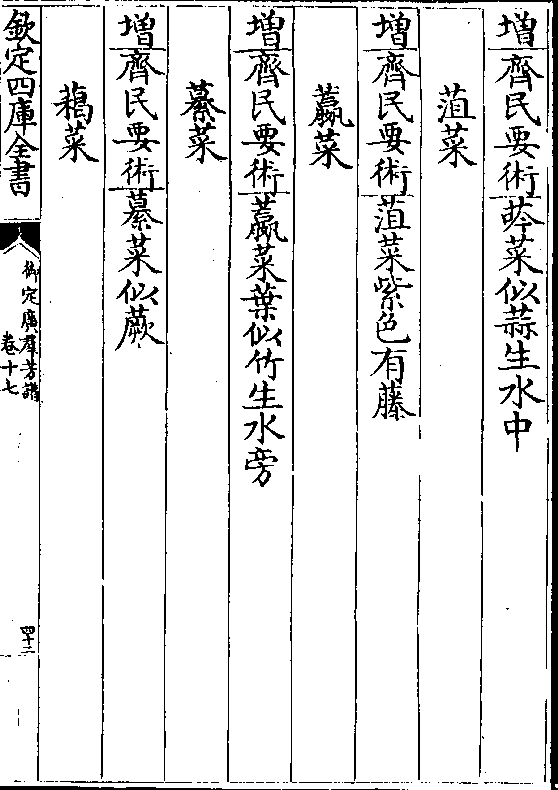 增齊民要術菜似蒜生水中
菹菜
增齊民要術菹菜紫色有藤
䕦菜
增齊民要術䕦菜葉似竹生水旁
藄菜
增齊民要術藄菜似蕨
藒菜
欽定四庫全書
御定廣羣芳譜
卷十七
四十二